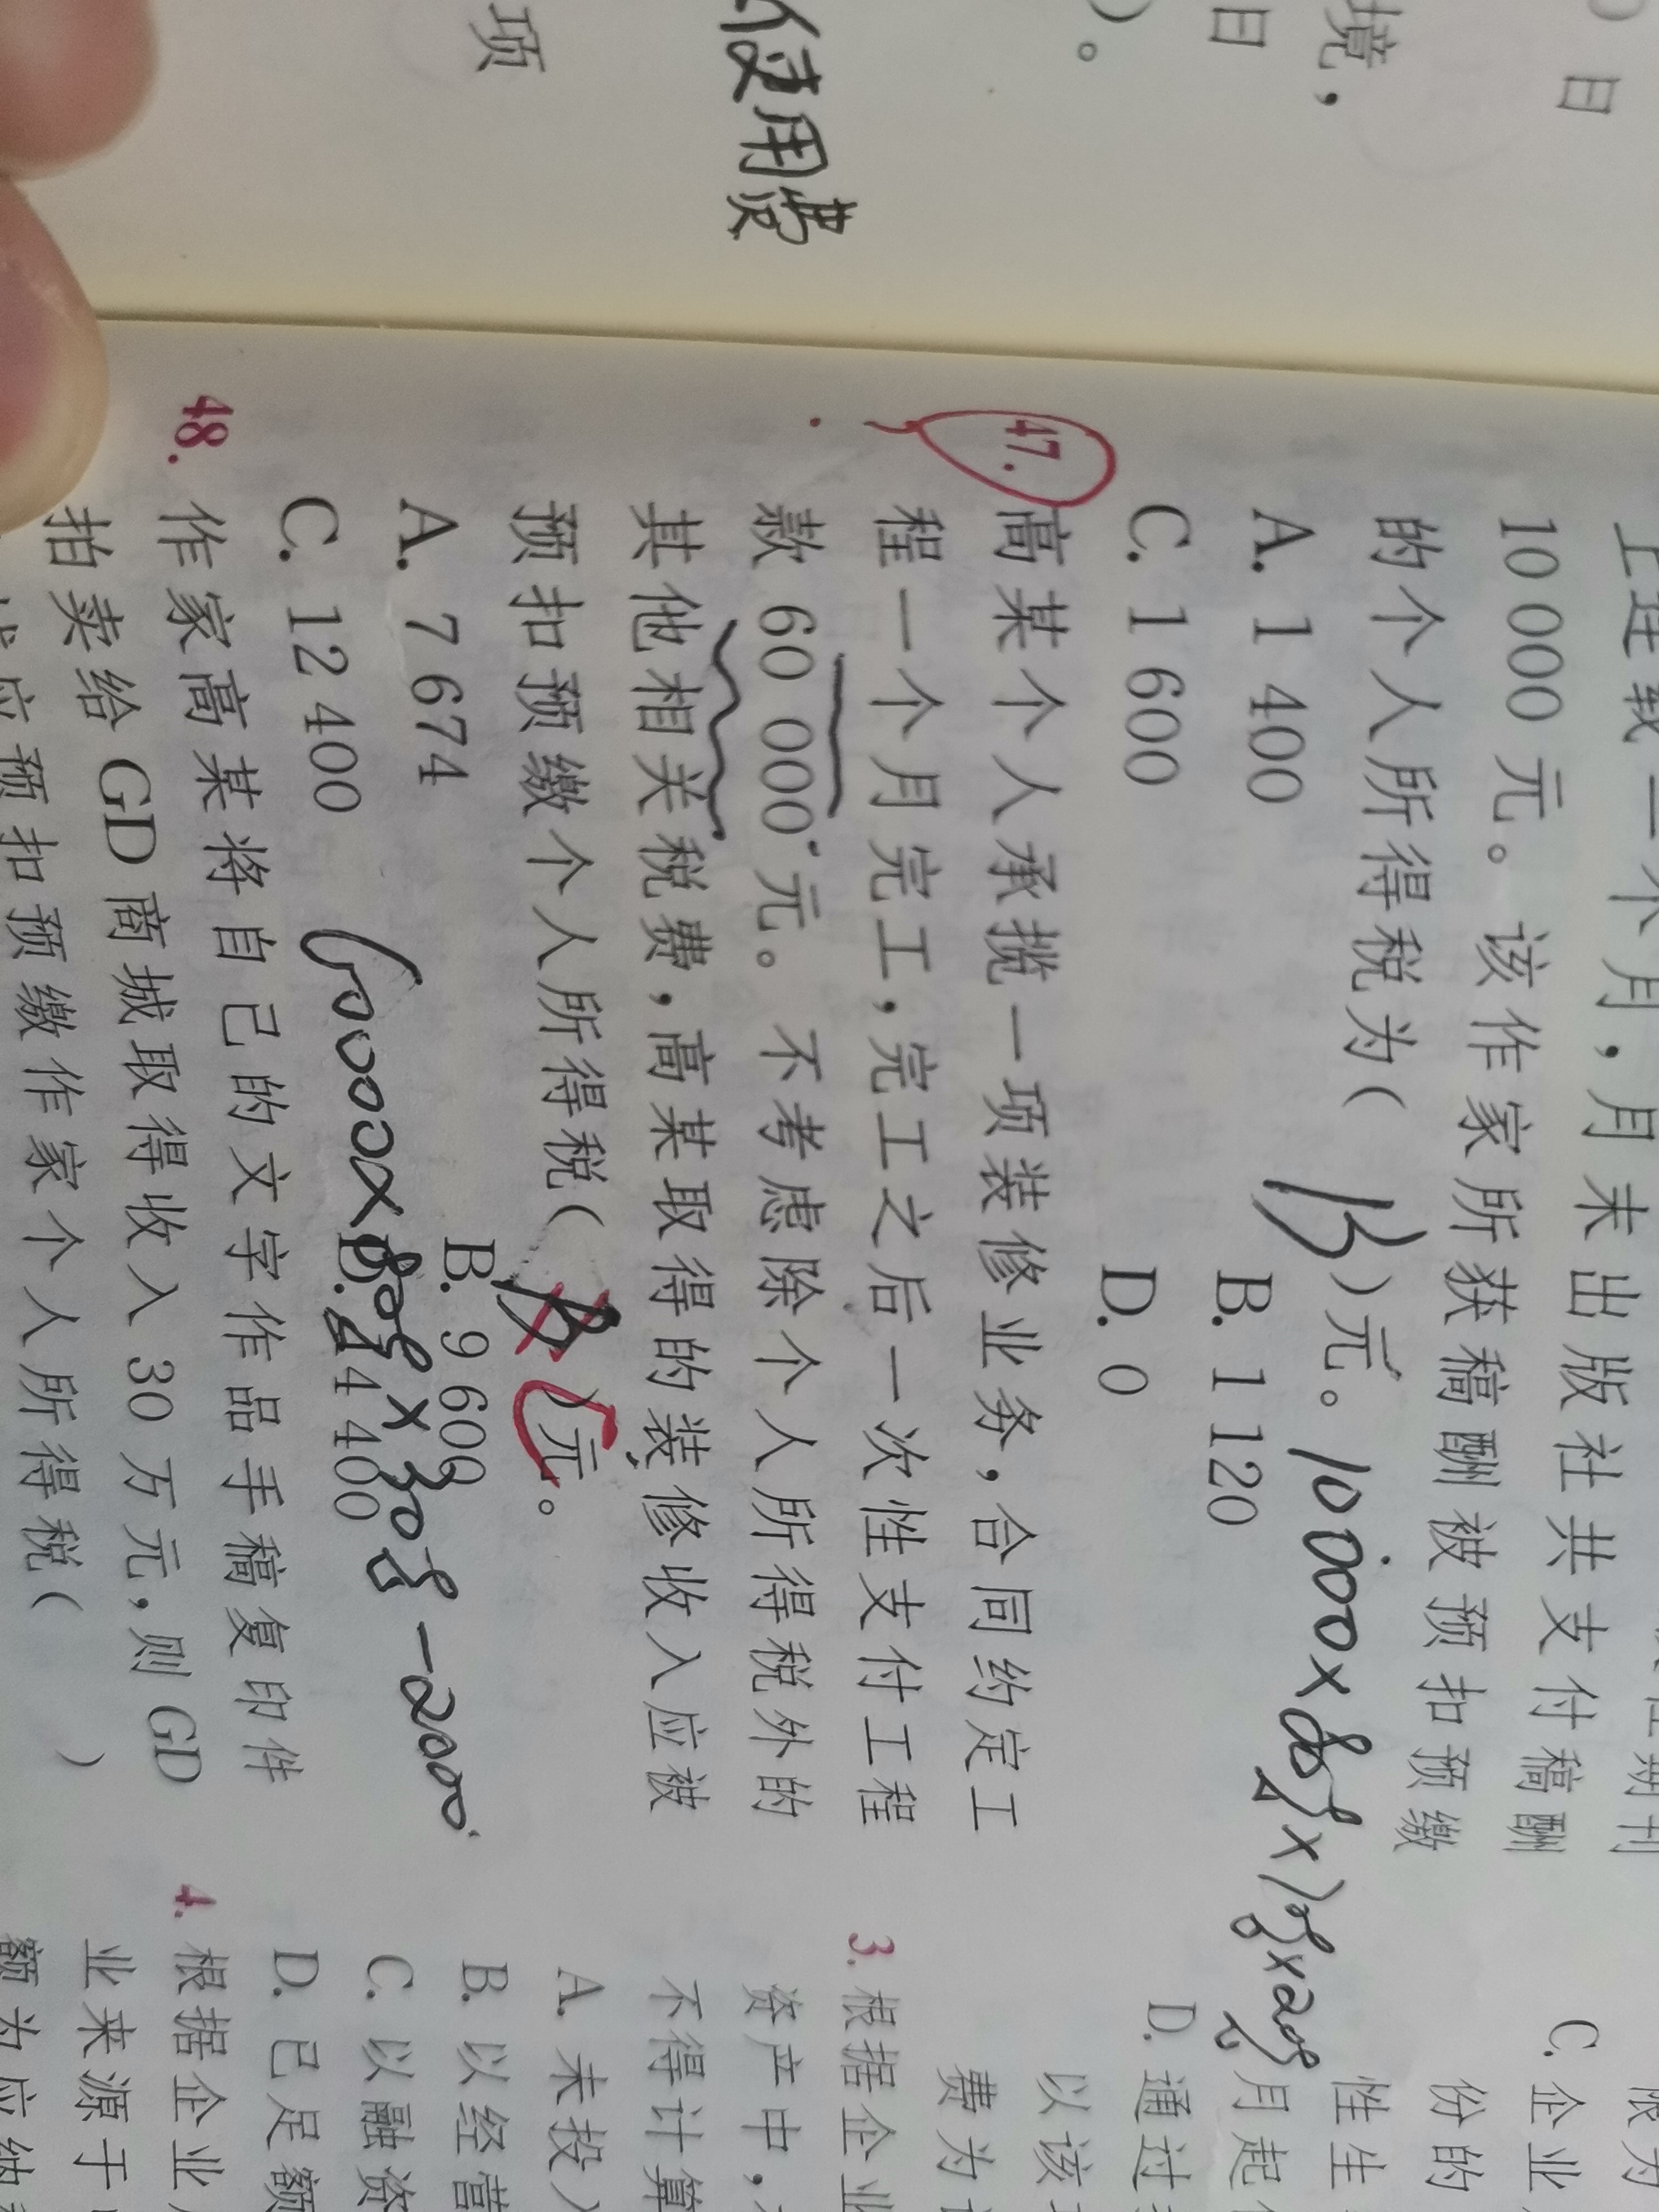 使用费
项
日
境，
日
）。
上连载一个月，月末出版社共支付稿酬
10 000 元。该作家所获稿酬被预扣预缴
的个人所得税为（ B ）元。 10000×80%×70%×20%
A. 1 400 B. 1 120
C. 1 600 D. 0
47. 高某个人承揽一项装修业务，合同约定工
程一个月完工，完工之后一次性支付工程
款 60 000 元。不考虑除个人所得税外的
其他相关税费，高某取得的装修收入应被
预扣预缴个人所得税（ B ）元。 C
A. 7 674 B. 9 600
C. 12 400 D. 14 400
60000×80%×30%-2000
48. 作家高某将自己的文字作品手稿复印件
拍卖给 GD 商城取得收入 30 万元，则 GD
应预扣预缴作家个人所得税（ ）
C. 企业
份的
性生
月起
D. 通过
以该
费为
3. 根据企业
资产中，
不得计算
A. 未投入
B. 以经营
C. 以融资
D. 已足额
4. 根据企业
业来源于
额为应纳